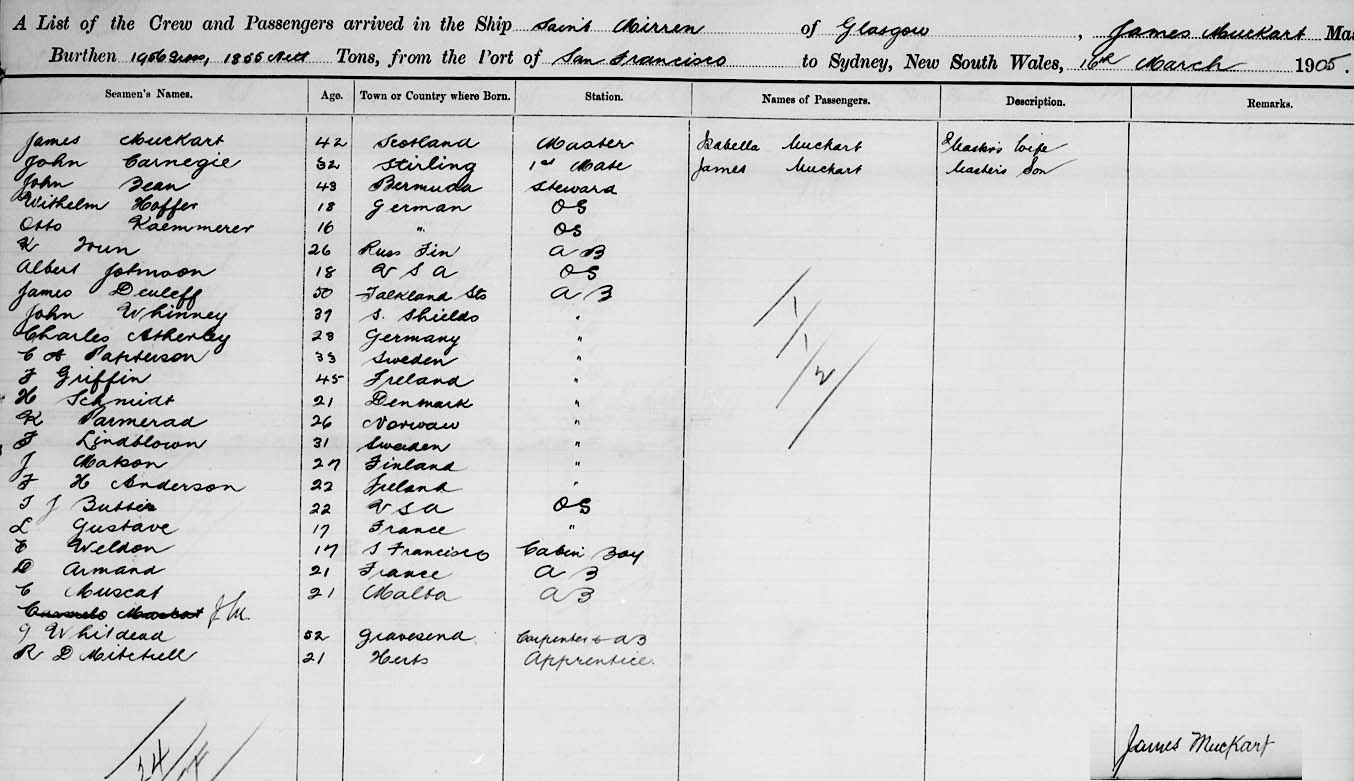 A List of the Crew and Passengers arrived in the Ship Saint Mirren of Glasgow, James Muckart Mas
Burthen 1956 Gross, 1855 Nett Tons, from the Port of San Francisco to Sydney, New South Wales, 16th March 1905.
Seamen's Names. Age. Town or Country where Born. Station. Names of Passengers. Description. Remarks.
James Muckart 42 Scotland Master Isabella Muckart Master's Wife
John Carnegie 32 Stirling 1st Mate James Muckart Master's Son
John Dean 43 Bermuda Steward
Wilhelm Hoffer 18 German OS
Otto Kaemmerer 16 " OS
K 26 Russ Fin AB
Albert Johnson 18 USA OS
James 50 Falkland Sts AB
John Whinney 39 S. Shields "
Charles Atherley 28 Germany "
C A Patterson 33 Sweden "
F Griffin 45 Ireland "
H Schmidt 21 Denmark "
K Parmerad 26 Norwaw "
F Lindblown 31 Sweden "
J Matson 27 Finland "
F H Anderson 22 Ireland "
T J 22 USA OS
L Gustave 17 France "
E Weldon 17 S Francisco Cabin Boy
D Armand 21 France AB
C Muscat 21 Malta AB
J.M.
G Whildead 52 Gravesend Carpenter & AB
R D Mitchell 21 Herts Apprentice
1
1
2
24
James Muckart